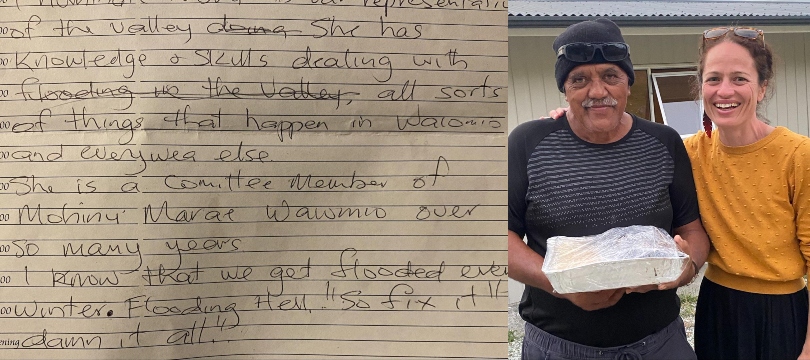 our representati
of the valley doing She has
Knowledge & Skills dealing with
flooding up the Valley, all sorts
of things that happen in Waiomio
and everywea else.
She is a Comittee Member of
Mohinui Marae Waiomio over
so many years
I know that we get flooded eve
winter. Flooding Hell. "So fix it"
damn it all."